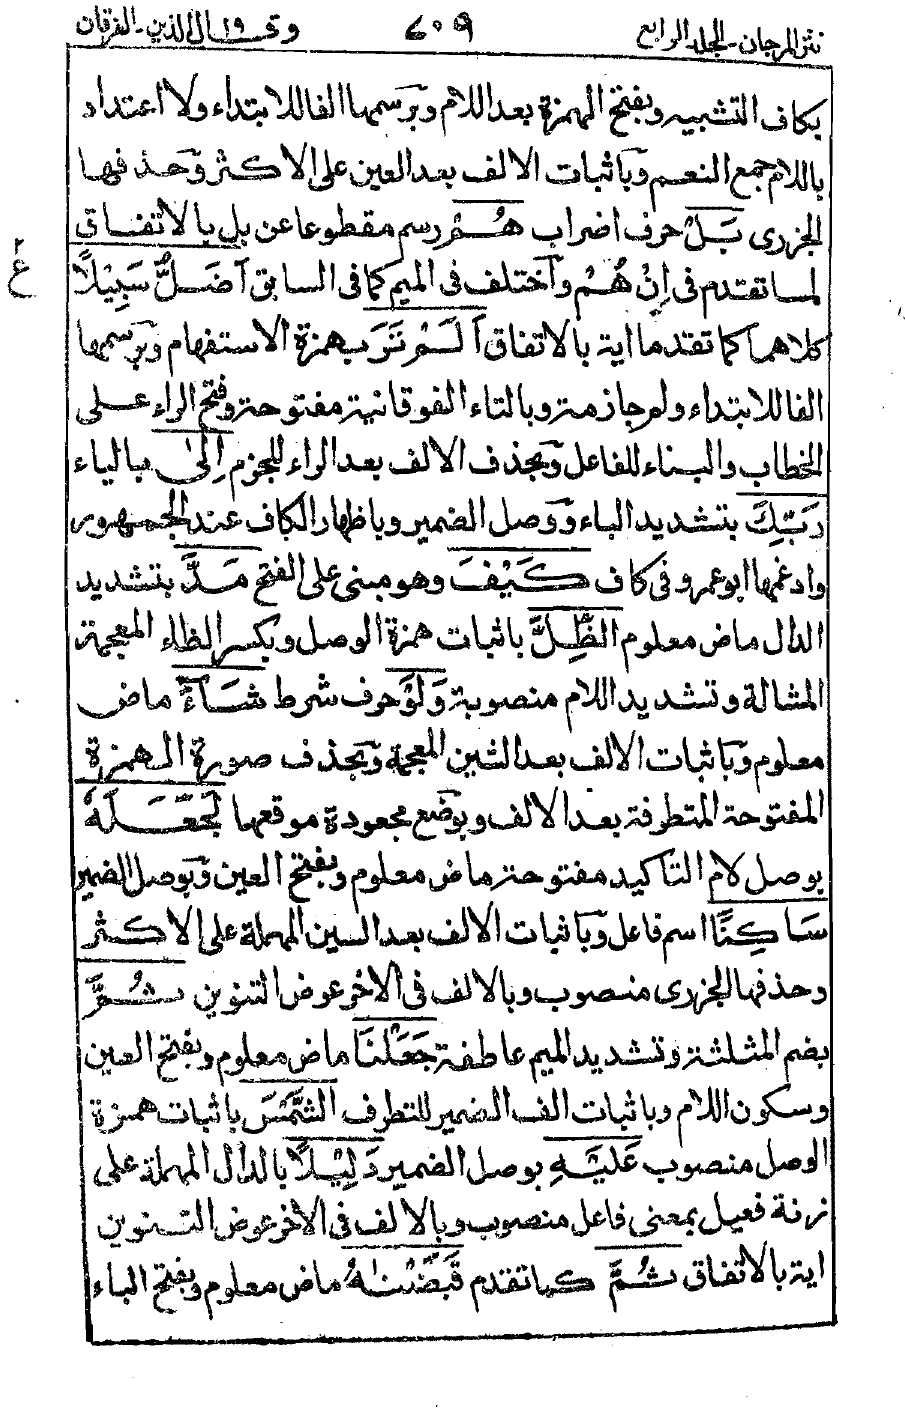 نثر المرجان ـ الجلد الرابع ٧٠٩ وقال ١٩ الذين ـ الفرقان
بكاف التشبيه وبفتح الهمزة بعد اللام وبرسمها الفا للابتداء ولا اعتداد
باللام جمع النعم وباثبات الالف بعد العين على الاكثر وحذفها
الجزرى بَلْ حرف اضراب هُمْ رسم مقطوعا عن بل بالاتفاق
لما تقدم فى اِنْ هُمْ واختلف فى الميم كما فى السابق اَضَلُّ سَبِيْلًا
كلاهما كما تقدما اية بالاتفاق اَلَمْ تَرَ بهمزة الاستفهام وبرسمها
الفا للابتداء ولم جازمة وبالتاء الفوقانية مفتوحة وفتح الراء على
الخطاب والبناء للفاعل وبحذف الالف بعد الراء للجزم اِلٰى بالياء
رَبِّكَ بتشديد الباء ووصل الضمير وباظهار الكاف عند الجمهور
وادغمها ابو عمرو فى كاف كَيْفَ وهو مبنى على الفتح مَدَّ بتشديد
الدال ماض معلوم الظِّلَّ باثبات همزة الوصل وبكسر الظاء المعجمة
المشالة وتشديد اللام منصوبة وَلَوْ حرف شرط شَآءَ ماض
معلوم وباثبات الالف بعد الشين المعجمة وبحذف صورة الهمزة
المفتوحة المتطرفة بعد الالف وبوضع مجعودة موقعها لَجَعَلَهٗ
بوصل لام التاكيد مفتوحة ماض معلوم وبفتح العين وبوصل الضمير
سَاكِنًا اسم فاعل وباثبات الالف بعد السين المهملة على الاكثر
وحذفها الجزرى منصوب وبالالف فى الاخر عوض التنوين ثُمَّ
بضم المثلثة وتشديد الميم عاطفة جَعَلْنَا ماض معلوم وبفتح العين
وسكون اللام وباثبات الف الضمير للتطرف الشَّمْسَ باثبات همزة
الوصل منصوب عَلَيْهِ بوصل الضمير دَلِيْلًا بالدال المهملة على
زنة فعيل بمعنى فاعل منصوب وبالالف فى الاخر عوض التنوين
اية بالاتفاق ثُمَّ كما تقدم قَبَضْنٰهُ ماض معلوم وبفتح الباء
٢
ع